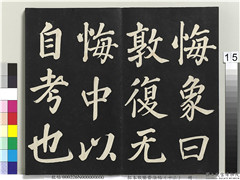 悔象曰
敦復无
悔中以
自考也
15